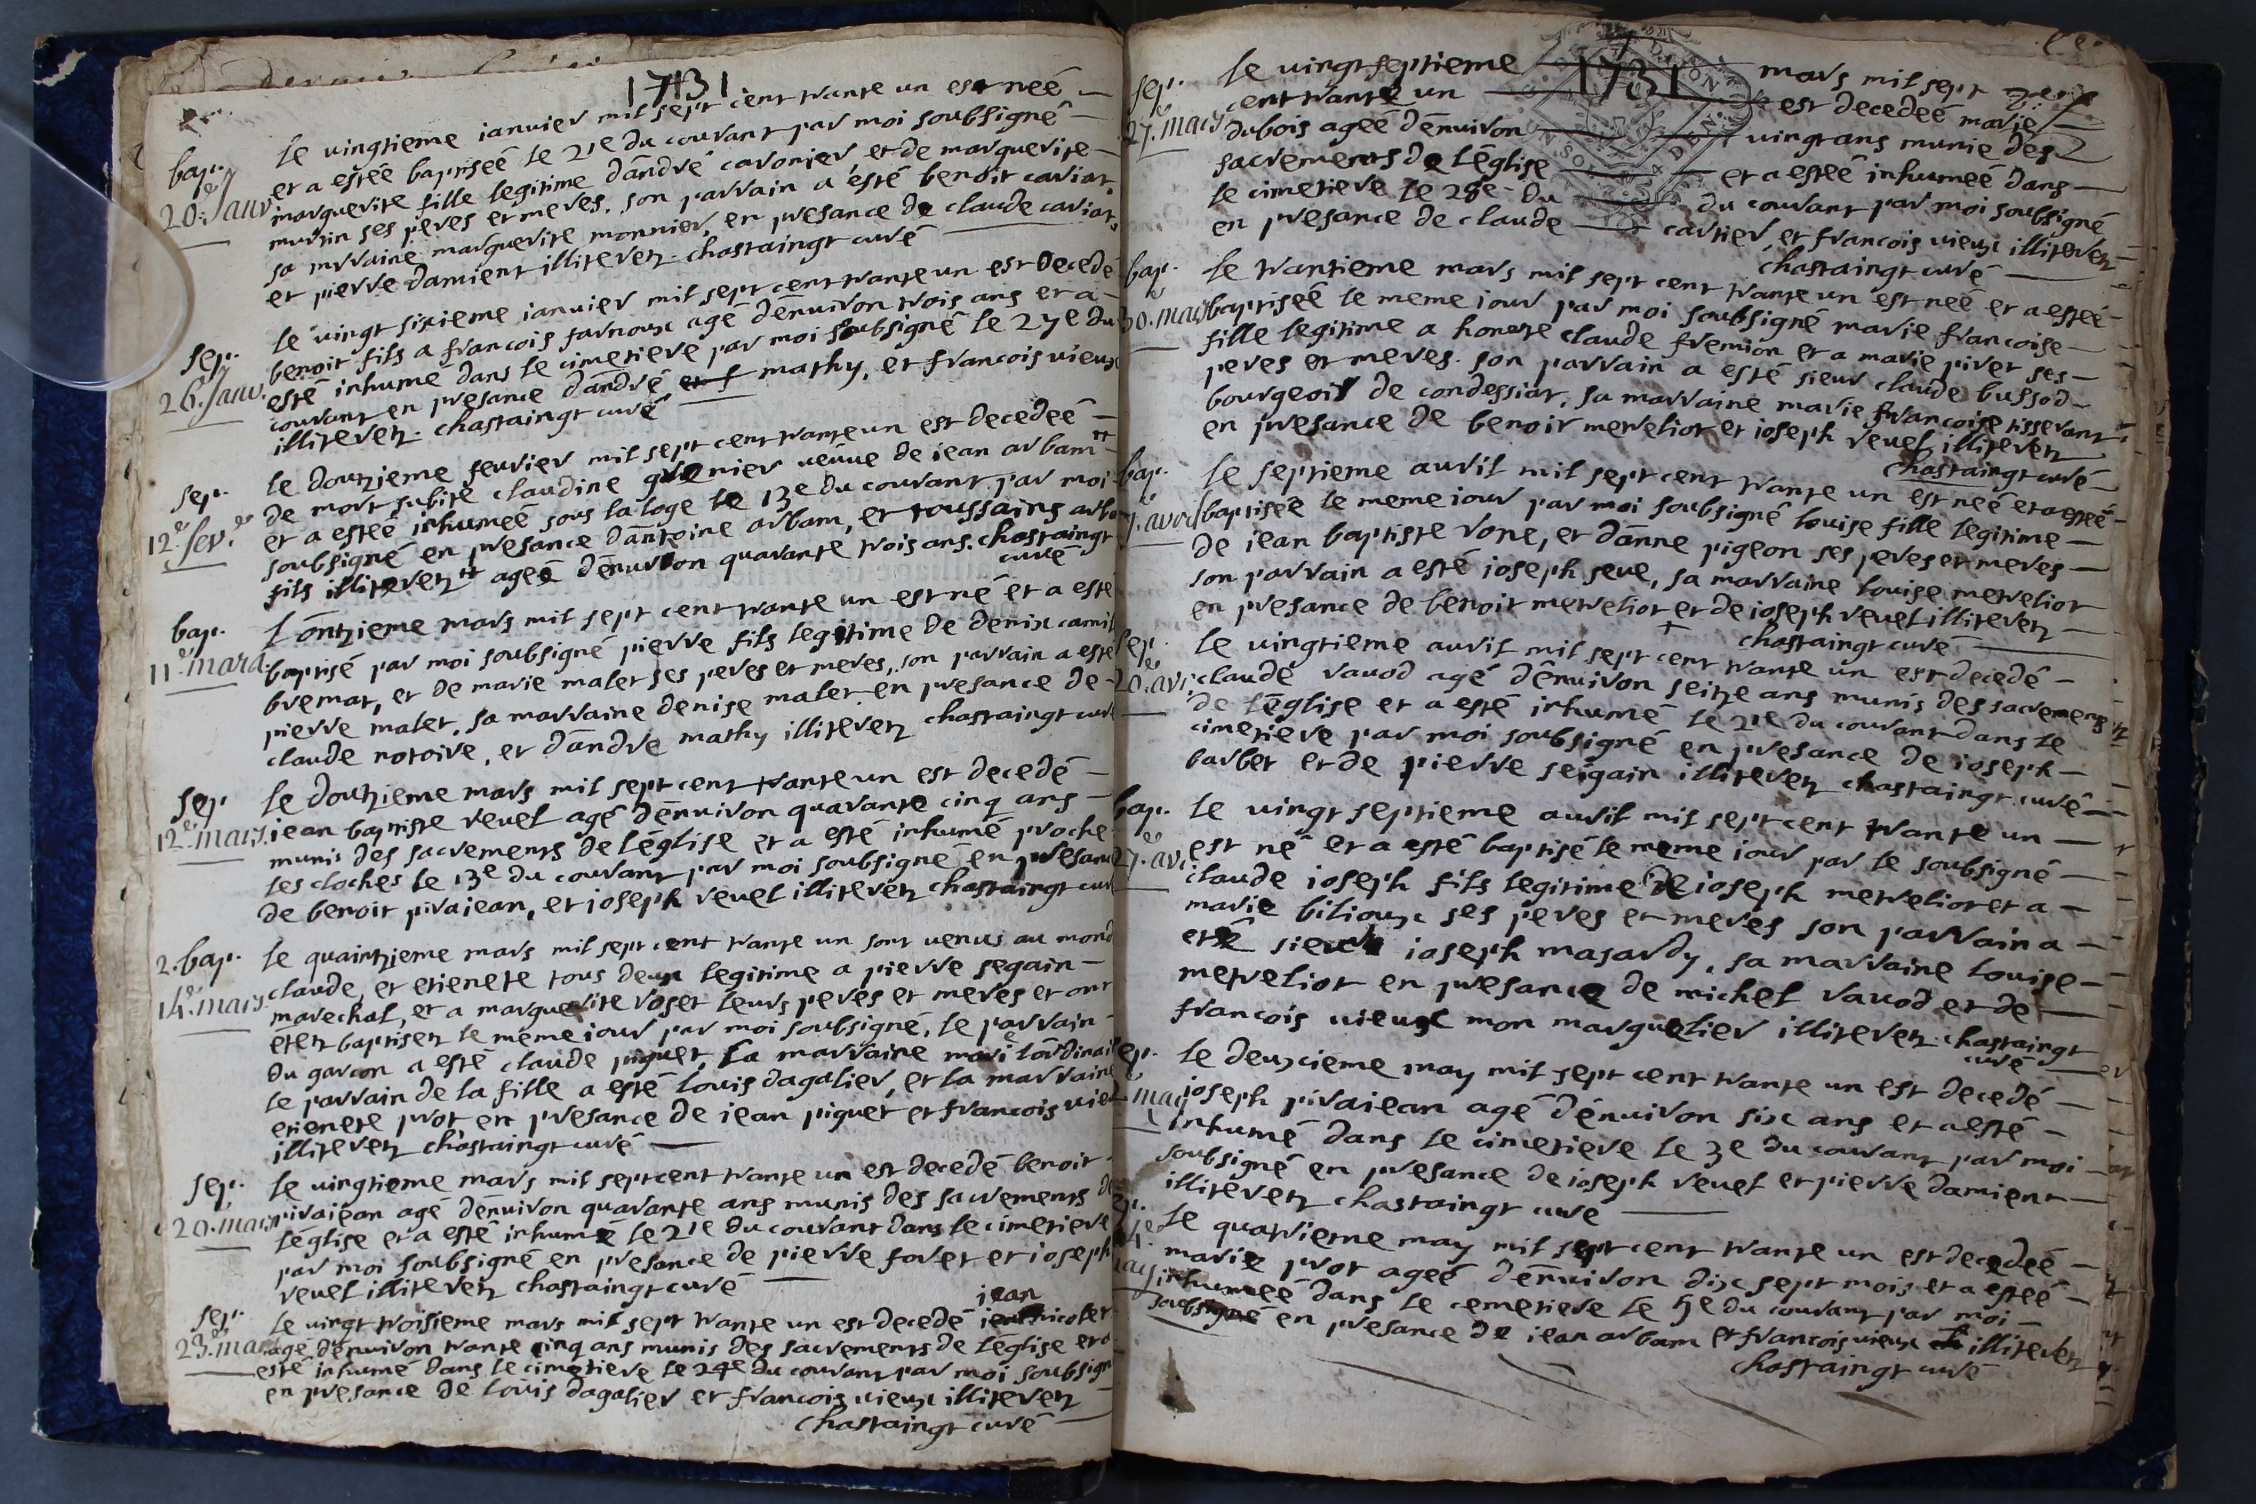 1731
bap. le vingtieme ianvier mil sept cent trante un est neé
20.e Janv. et a esteé baptiseé le 21e du courant par moi soubsigné
marguerite fille legitime d'andré caronier et de marguerite
murtin ses peres et meres. son parrain a esté benoit cariat,
sa mrraine marguerite monnier, en presance de claude cariat,
et pierre damient illiteretz. chastaingt curé
sep. le vingt sixieme ianvier mil sept cent trante un est decedé
26. Janv. benoit fils a francois farnoux agé d'enuiron trois ans et a
esté inhumé dans le cimetiere par moi soubsigné le 27e du
courant en presance d'andré mathy, et francois vieux
illiteretz. chastaingt curé
sep. le doutzieme feurier mil sept cent trante un est decedeé
12.e fev.r de mort subite claudine grenier veuve de iean arbam
et a esteé inhumeé sous la loge le 13e du courant par moi
soubsigné en presance d'antoine arbam, et toussains
fils illiteretz ageé d'enuiron quarante trois ans. chastaingt
curé
bap. L'ontzieme mars mil sept cent trante un est né et a esté
11.e mars baptisé par moi soubsigné pierre fils legitime de denix camil
bremat, et de marie malet ses peres et meres, son parrain a esté
pierre malet, sa marraine denise malet en presance de
claude notoire, et d'andre mathy illiteretz chastaingt curé
sep le doutzieme mars mil sept cent trante un est decedé
12.e mars. iean baptiste revel agé d'enuiron quarante cinq ans
munis des sacrements de l'église et a esté inhumé proche
les cloches le 13e du courant par moi soubsigné en presance
de benoit pivaiean, et ioseph revel illiteretz chastaingt curé
2. bap. le quaintzieme mars mil sept cent trante un sont venus au mond
14.e mars claude, et etienete tous deux legitime a pierre segain
marechal, et a marguerite roset leurs peres et meres et ont
ététz baptisez le même iour par moi soubsigné, le parrain
du garcon a esté claude piguet, la marraine
le parrain de la fille a esté louis dagalier, et la marraine
etienete prot, en presance de iean piguet et francois vieux
illiteretz chastaingt curé
sep. le vingtieme mars mil sept cent trante un est decedé benoit
20. mars pivaiean agé d'enuiron quarante ans munis des sacrements de
l'église et a esté inhumé le 21e du courant dans le cimetiere
par moi soubsigné en presance de pierre foret et ioseph
revel illiteretz chastaingt curé
iean
sep. le vingt troisieme mars mil sept trante un est decedé nicolet
23.e mars agé d'enuiron trante cinq ans munis des sacrements de l'église et a
esté inhumé dans le cimetiere le 24e du courant par moi soubsigné
en presance de louis dagalier et francois vieux illiteretz
chastaingt curé
1731
sep. le vingt septieme mars mil sept
27. mars cent trante un est decedeé marie
dubois ageé d'enuiron vingt ans munie des
sacrements de l'église et a esteé inhumeé dans
le cimetiere le 28e du du courant par moi soubsigné
en presance de claude cartier, et francois vieux illiteretz
chastaingt curé
bap. le trantieme mars mil sept cent trante un est neé et a esteé
30. mars baptiseé le meme iour par moi soubsigné marie francoise
fille legitime a honete claude fremion et a marie pivet ses
peres et meres. son parrain a esté sieur claude bussod
bourgeois de condessiat, sa marraine marie francoise tisserant
en presance de benoit metrelior et ioseph revel illiteretz
chastaingt curé
bap. le septieme auril mil sept cent trante un est neé et a esteé
7. avril baptiseé le meme iour par moi soubsigné louise fille legitime
de iean baptiste rone, et d'anne pigeon ses peres et meres
son parrain a esté ioseph seve, sa marraine louise metrelior
en presance de benoit metrelior et de ioseph revel illiteretz
chastaingt curé
sep. le vingtieme auril mil sept cent trante un est decedé
20. avr. claude ravod agé d'enuiron seitze ans munis des sacremens
de l'église et a esté inhumé le 21e du courant dans le
cimetiere par moi soubsigné en presance de ioseph
barbet et de pierre seigain illiteretz chastaingt curé
bap. le vingt septieme auril mil sept cent trante un
27. av. est né et a esté baptisé le meme iour par le soubsigné
claude ioseph fils legitime de ioseph metrelior et a
marie bilioux ses peres et meres son parrain a
eté sieur ioseph masardy, sa marraine louise
metrelior en presance de michel ravod et de
francois vieux mon marguelier illiteretz chastaingt
curé
sep. le deuxcieme may mil sept cent trante un est decedé
mai ioseph pivaiean agé d'énuiron six ans et a esté
inhumé dans le cimetiere le 3e du courant par moi
soubsigné en presance de ioseph revel et pierre damient
illiteretz chastaingt curé
le quatrieme may mil sept cent trante un est decedeé
marie prot ageé d'enuiron dix sept mois et a esteé
inhumeé dans le cemetiere le 5e du courant par moi
soubsigné en presance de iean arbam et francois vieux illiteretz
chastaingt curé